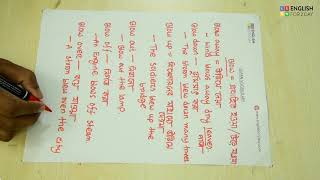 ENGLISH
FOR2DAY
Blow = প্রবাহিত হওয়া / উড়ে যাওয়া
Blow away = উড়িয়ে নেয়া
- Wind blows away dry leaves.
Blow down =
- The storm blew down many trees
Blow up = বিস্ফোরণের সাহায্যে উড়িয়ে দেওয়া
- The soldiers blew up the
bridge
Blow out - নিভানো
- Blow out the lamp
Blow off - নির্গত করা
- An Engine blows off steam
Blow over -
- A storm blew over the city